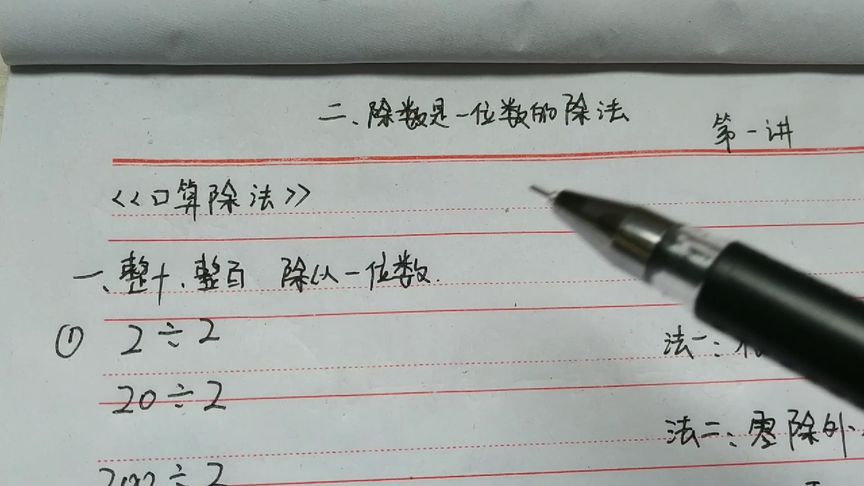 二、除数是一位数的除法
第一讲
<<口算除法>>
一、整十、整百 除以一位数.
① 2÷2
法一:
20÷2
法二:零除外.
200÷2